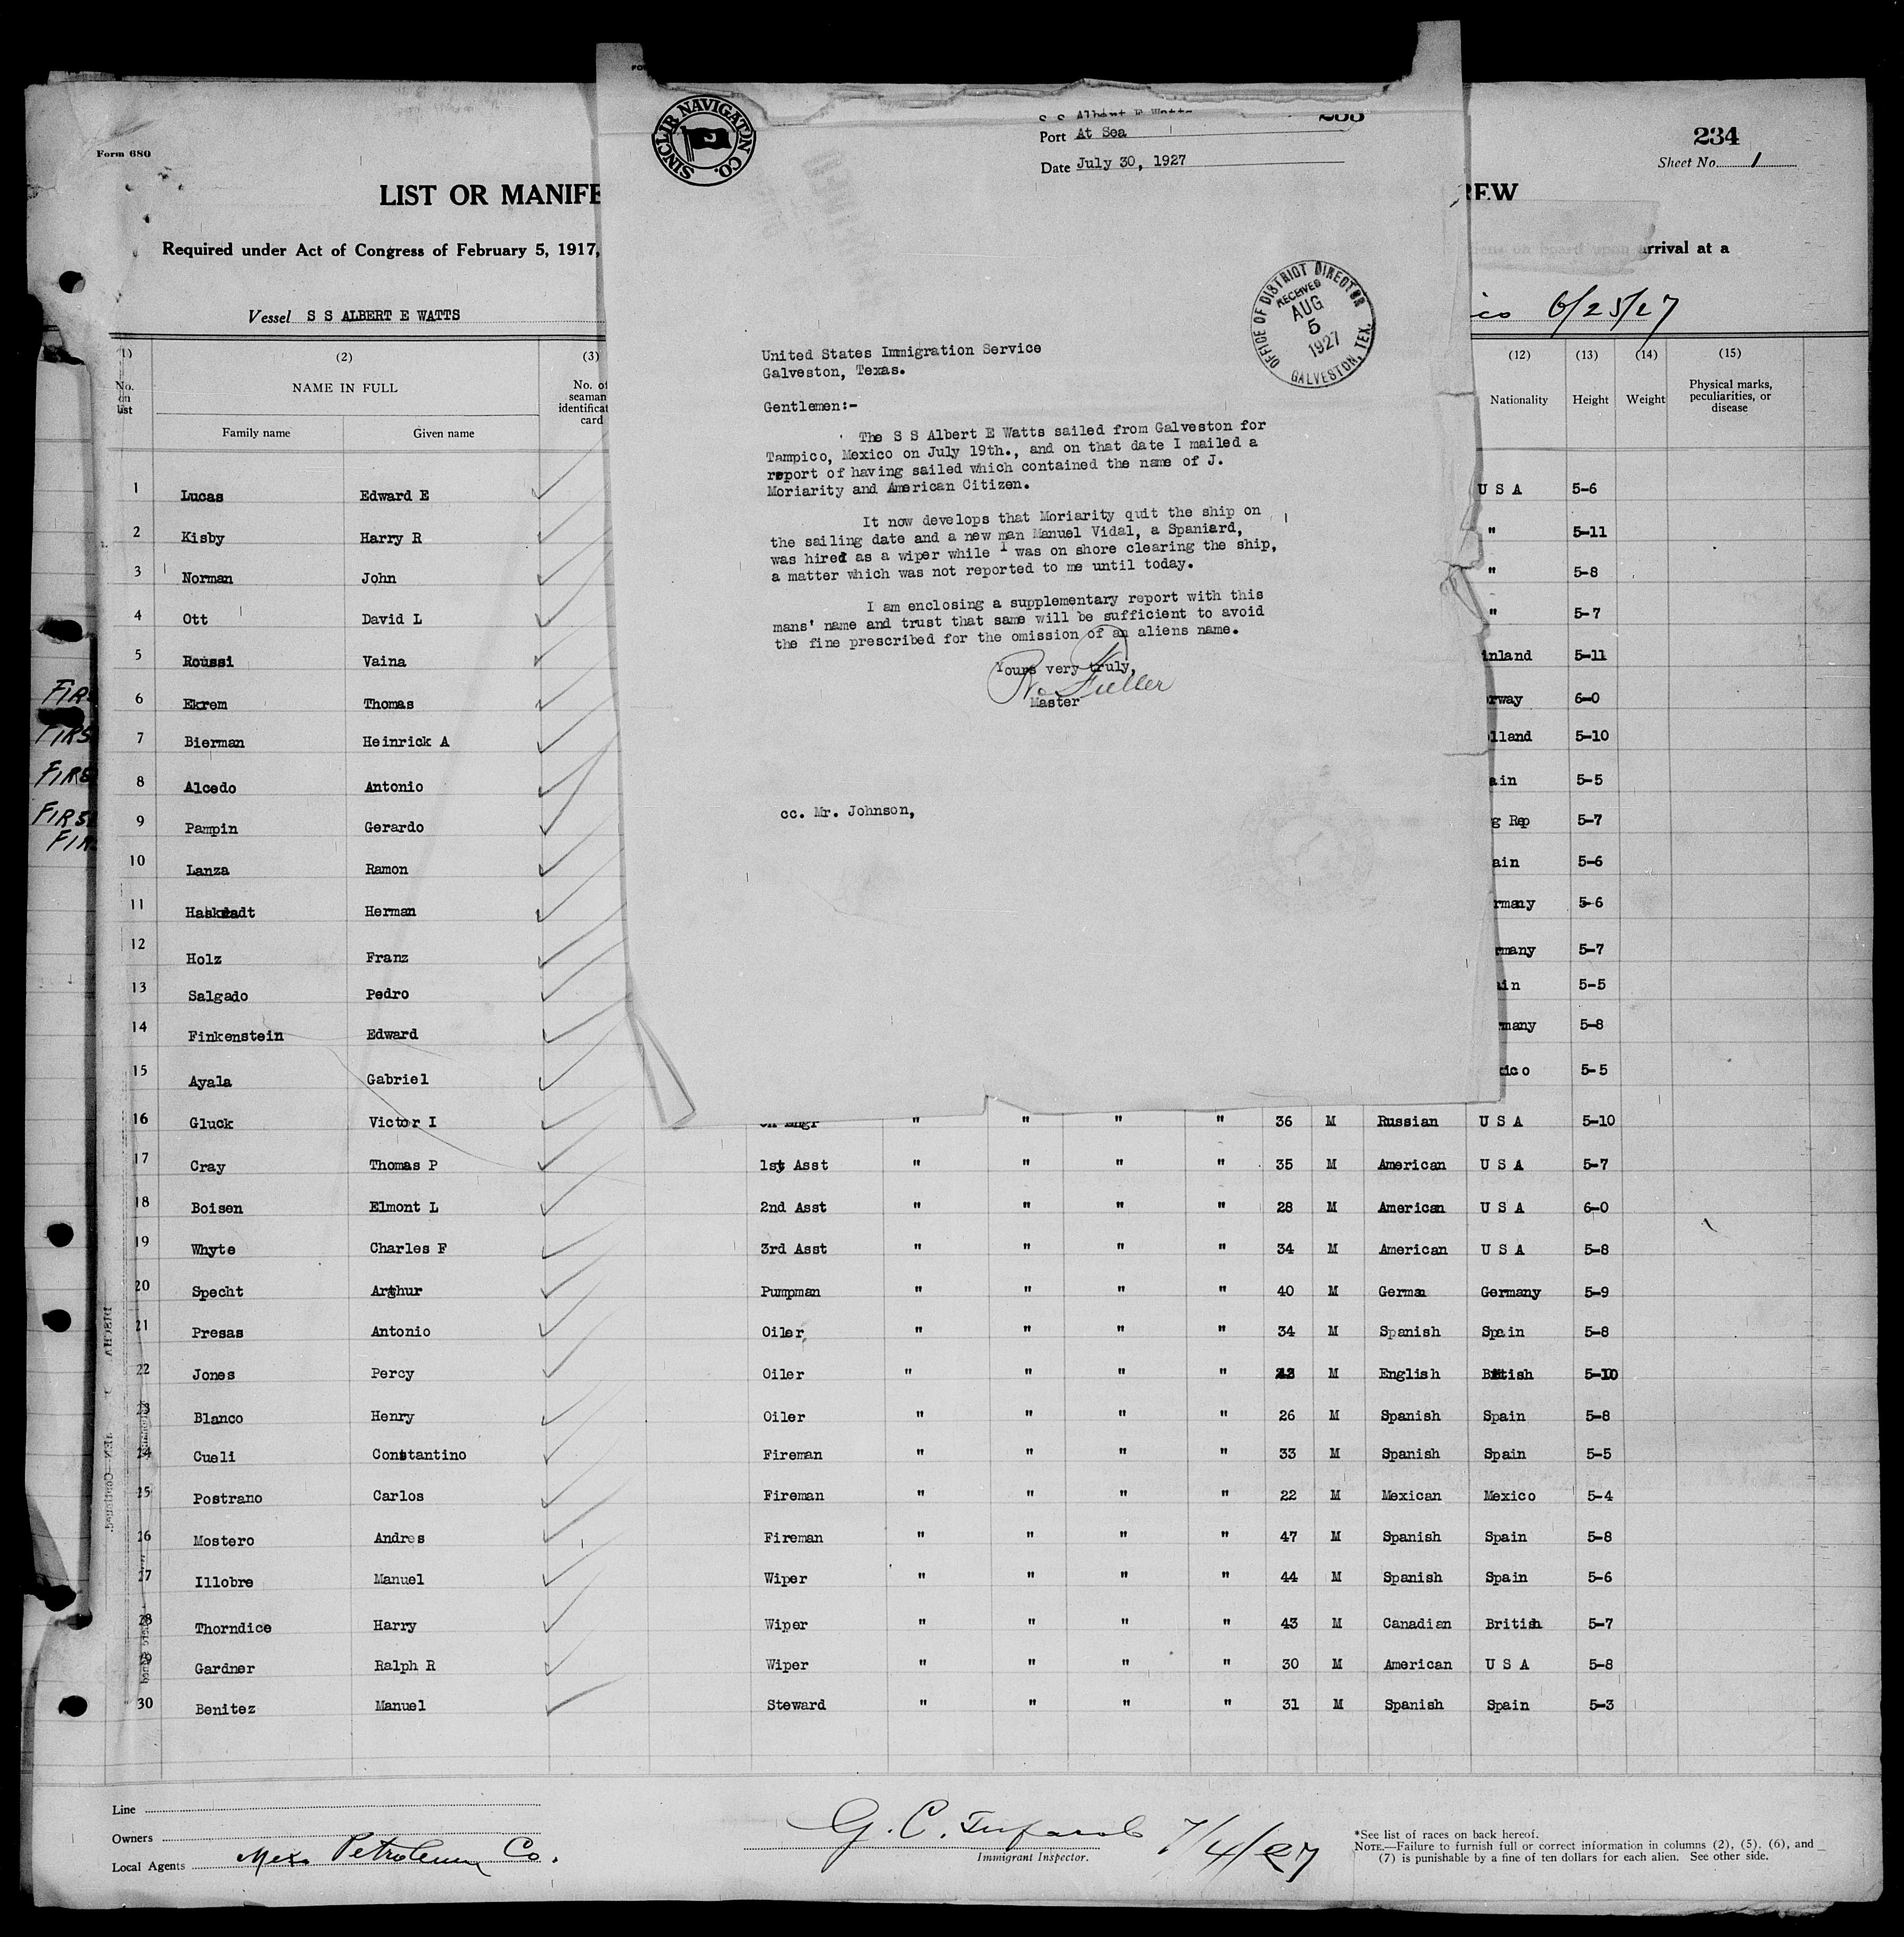 Form 680
234
Sheet No. 1
LIST OR MANIFE
REW
Required under Act of Congress of February 5, 1917,
iens on board upon arrival at a
Vessel S S ALBERT E WATTS
ico 6/25/27
SINCLIR NAVIGATON CO.
S S Albert E Watts
Port At Sea
Date July 30, 1927
OFFICE OF DISTRICT DIRECTOR
RECEIVED
AUG
5
1927
GALVESTON, TEX.
United States Immigration Service
Galveston, Texas.
Gentlemen:-
The S S Albert E Watts sailed from Galveston for
Tampico, Mexico on July 19th., and on that date I mailed a
report of having sailed which contained the name of J.
Moriarity and American Citizen.
It now develops that Moriarity quit the ship on
the sailing date and a new man Manuel Vidal, a Spaniard,
was hired as a wiper while I was on shore clearing the ship,
a matter which was not reported to me until today.
I am enclosing a supplementary report with this
mans' name and trust that same will be sufficient to avoid
the fine prescribed for the omission of an aliens name.
Yours very truly,
Fuller
Master
cc. Mr. Johnson,
(1) (2) (3) (12) (13) (14) (15)
No. on list
NAME IN FULL
Family name Given name
No. of seaman identificat card
Nationality Height Weight Physical marks, peculiarities, or disease
1 Lucas Edward E U S A 5-6
2 Kisby Harry R " 5-11
3 Norman John " 5-8
4 Ott David L " 5-7
5 Roussi Vaina inland 5-11
6 Ekrem Thomas rway 6-0
7 Bierman Heinrick A lland 5-10
8 Alcedo Antonio ain 5-5
9 Pampin Gerardo g Rep 5-7
10 Lanza Ramon ain 5-6
11 Herman rmany 5-6
12 Holz Franz rmany 5-7
13 Salgado Pedro ain 5-5
14 Finkenstein Edward many 5-8
15 Ayala Gabriel xico 5-5
16 Gluck Victor I Ch Engr " " " " 36 M Russian U S A 5-10
17 Cray Thomas P 1st Asst " " " " 35 M American U S A 5-7
18 Boisen Elmont L 2nd Asst " " " " 28 M American U S A 6-0
19 Whyte Charles F 3rd Asst " " " " 34 M American U S A 5-8
20 Specht Arthur Pumpman " " " " 40 M German Germany 5-9
21 Presas Antonio Oiler " " " " 34 M Spanish Spain 5-8
22 Jones Percy Oiler " " " " M English British 5-10
23 Blanco Henry Oiler " " " " 26 M Spanish Spain 5-8
24 Cueli Constantino Fireman " " " " 33 M Spanish Spain 5-5
25 Postrano Carlos Fireman " " " " 22 M Mexican Mexico 5-4
26 Mostero Andres Fireman " " " " 47 M Spanish Spain 5-8
27 Illobre Manuel Wiper " " " " 44 M Spanish Spain 5-6
28 Thorndice Harry Wiper " " " " 43 M Canadian British 5-7
29 Gardner Ralph R Wiper " " " " 30 M American U S A 5-8
30 Benitez Manuel Steward " " " " 31 M Spanish Spain 5-3
FIR
FIRS
FIRS
FIRS
FIR
Line
Owners
Local Agents Mex. Petroleum Co.
G. C. 7/4/27
Immigrant Inspector.
*See list of races on back hereof.
NOTE.—Failure to furnish full or correct information in columns (2), (5), (6), and
(7) is punishable by a fine of ten dollars for each alien. See other side.